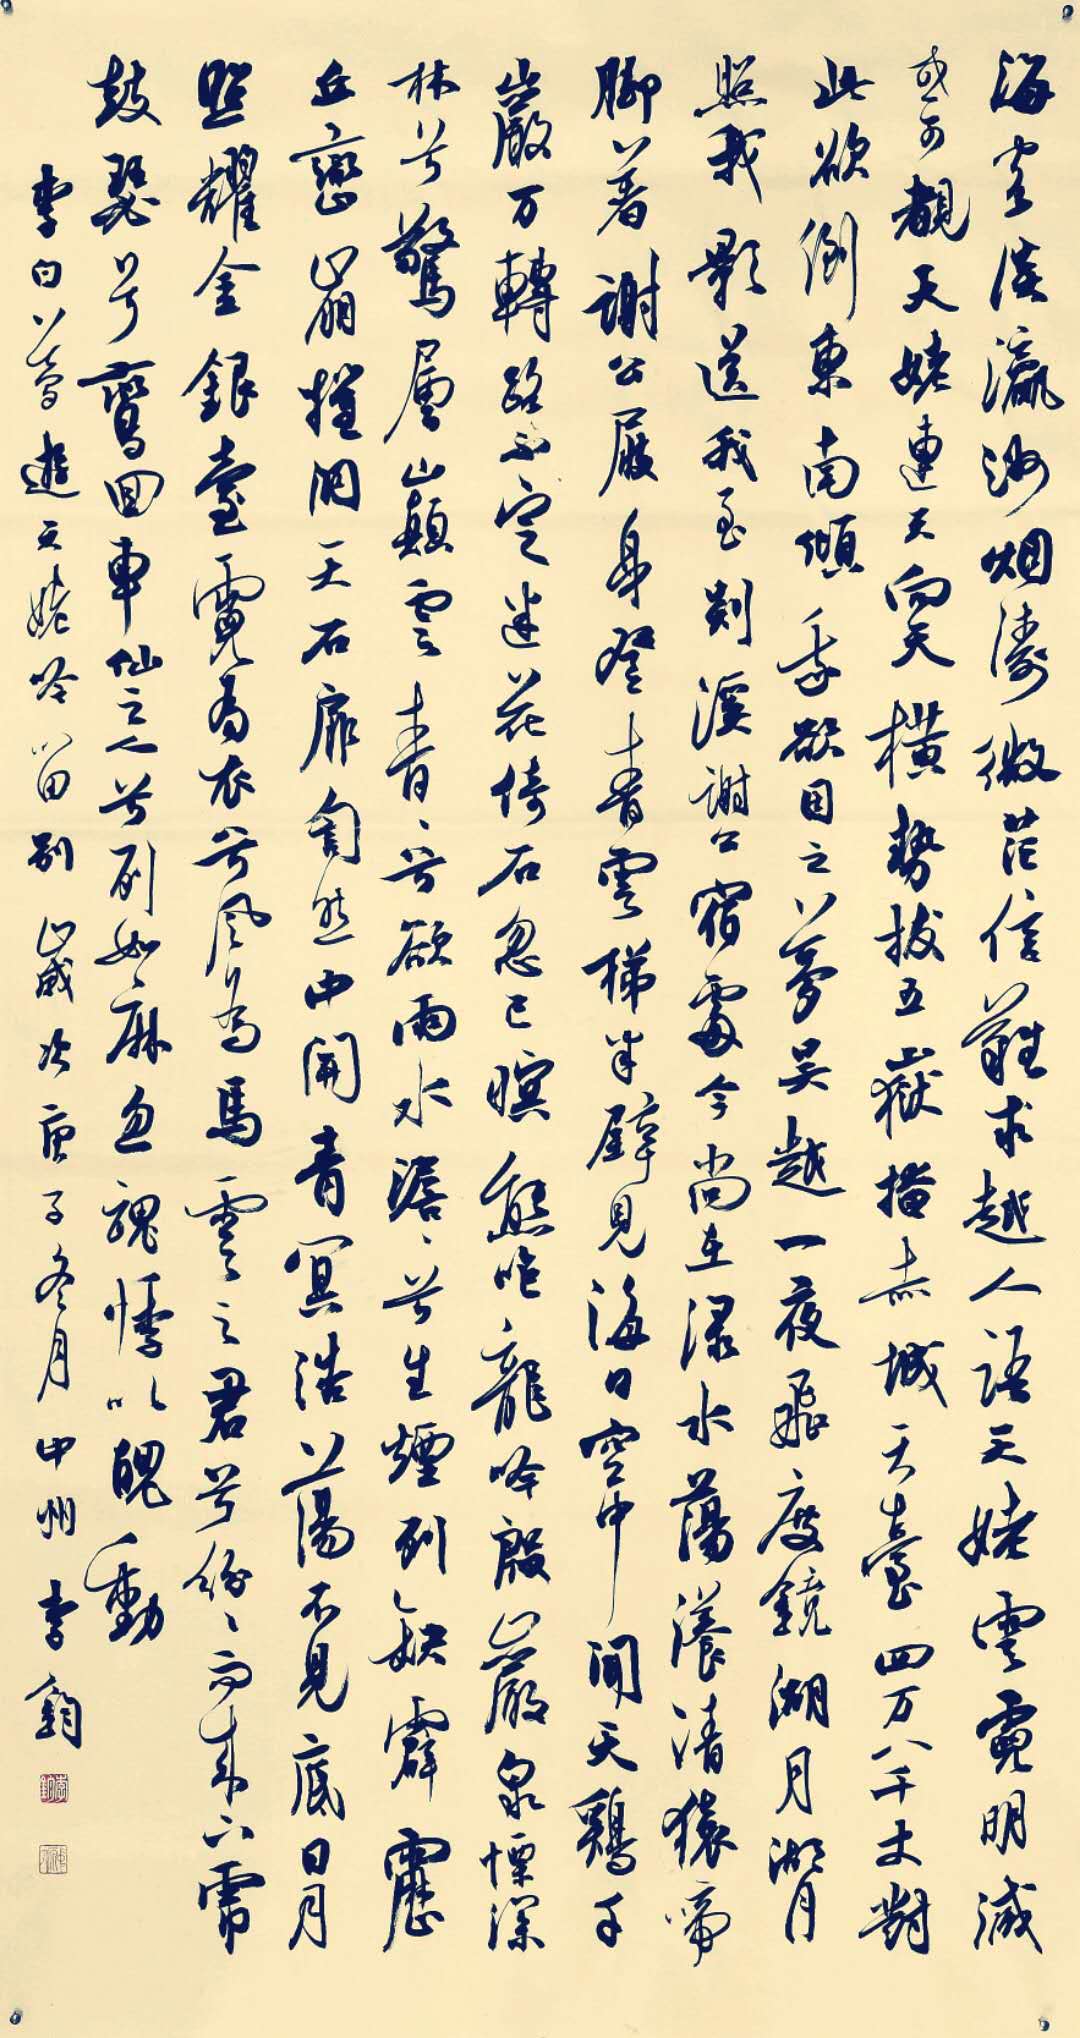 海客談瀛洲烟濤微茫信難求越人語天姥雲霓明滅
或可覩天姥連天向天橫勢拔五嶽掩赤城天臺四万八千丈對
此欲倒東南傾我欲因之夢吳越一夜飛度鏡湖月湖月
照我影送我至剡溪謝公宿處今尚在淥水蕩漾清猿啼
脚著謝公屐身登青雲梯半壁見海日空中聞天鷄千
巖万轉路不定迷花倚石忽已暝熊咆龍吟殷巖泉慄深
林兮驚層巔雲青、兮欲雨水澹、兮生煙列缺霹靂
丘巒崩摧洞天石扉訇然中開青冥浩蕩不見底日月
照耀金銀臺霓為衣兮風為馬雲之君兮紛、而來下虎
鼓瑟兮鸞回車仙之人兮列如麻忽魂悸以魄動
李白夢遊天姥吟留別歲次庚子冬月中州李鈞